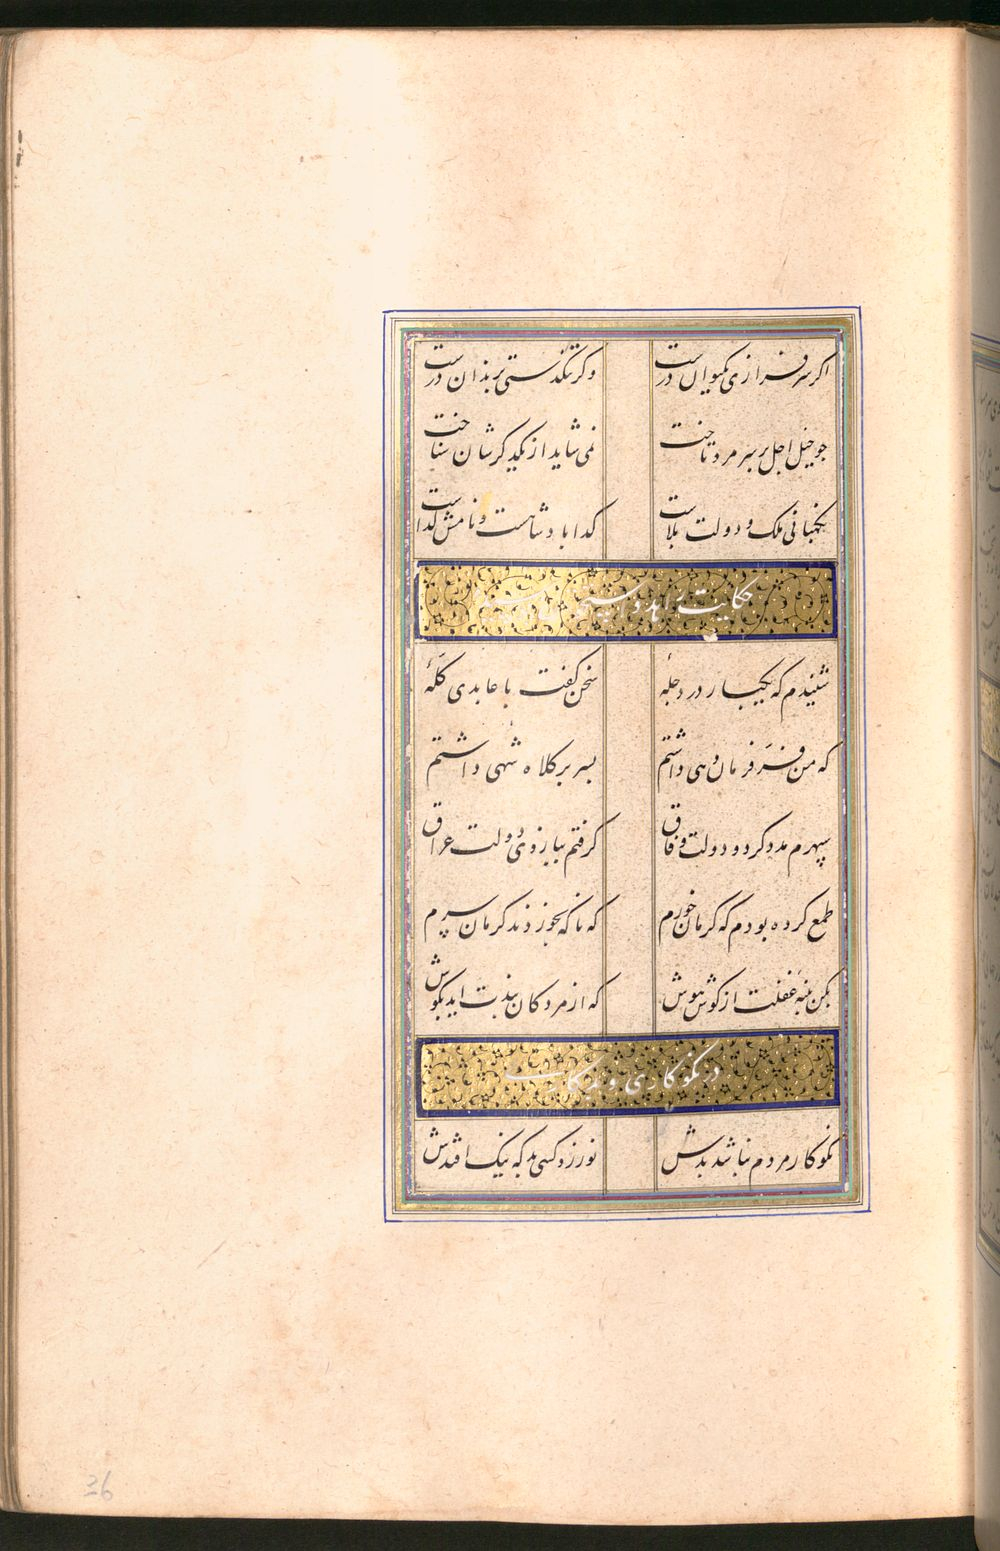 اکر سرفرازی بکیوان درست
وکر تنکدستی بزندان درست
جو خیل اجل بر سر مرد تاخت
نمی شاید از یکدکرشان شناخت
نکهبانی ملک و دولت بلاست
کدا بادشاهست و نامش کداست
حکایت زاهد و
شنیدم که یکبار در دجلهٔ
سخن کفت با عابدی کلهٔ
که من فر فرمان دهی داشتم
بسر بر کلاه شهی داشتم
سپهرم مدد کرد و دولت وفاق
کرفتم ببازوی دولت عراق
طمع کرده بودم که کرمان خورم
که ناکه بخوردند کرمان سرم
بکن پنبه غفلت از کوش هوش
که از مردکان پندت اید بکوش
در نکوکاری و
نکوکار مردم نباشد بدش
نورزد کسی بد که نیک افتدش
36